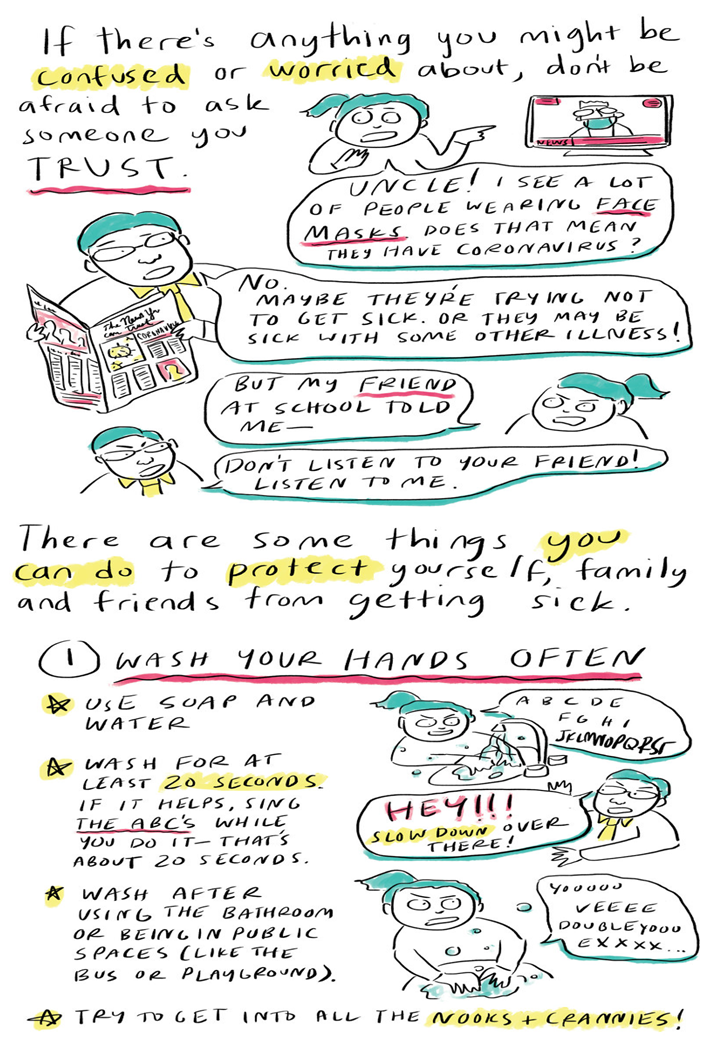 If there's anything you might be
confused or worried about, don't be
afraid to ask
someone you
TRUST.
NEWS
UNCLE! I SEE A LOT
OF PEOPLE WEARING FACE
MASKS DOES THAT MEAN
THEY HAVE CORONAVIRUS?
The News Yu
can trust
CORONAVIRUS
NO.
MAYBE THEY'RE TRYING NOT
TO GET SICK. OR THEY MAY BE
SICK WITH SOME OTHER ILLNESS!
BUT MY FRIEND
AT SCHOOL TOLD
ME—
DON'T LISTEN TO YOUR FRIEND!
LISTEN TO ME.
There are some things you
can do to protect yourself, family
and friends from getting sick.
1 WASH YOUR HANDS OFTEN
USE SOAP AND
WATER
WASH FOR AT
LEAST 20 SECONDS.
IF IT HELPS, SING
THE ABC'S WHILE
YOU DO IT— THAT'S
ABOUT 20 SECONDS.
WASH AFTER
USING THE BATHROOM
OR BEING IN PUBLIC
SPACES (LIKE THE
BUS OR PLAYGROUND).
TRY TO GET INTO ALL THE NOOKS + CRANNIES!
A B C D E
F G H I
JKLMNOPQRST
HEY!!!
SLOW DOWN OVER
THERE!
YOUUUU
VEEEE
DOUBLEYOUU
EXXXX...